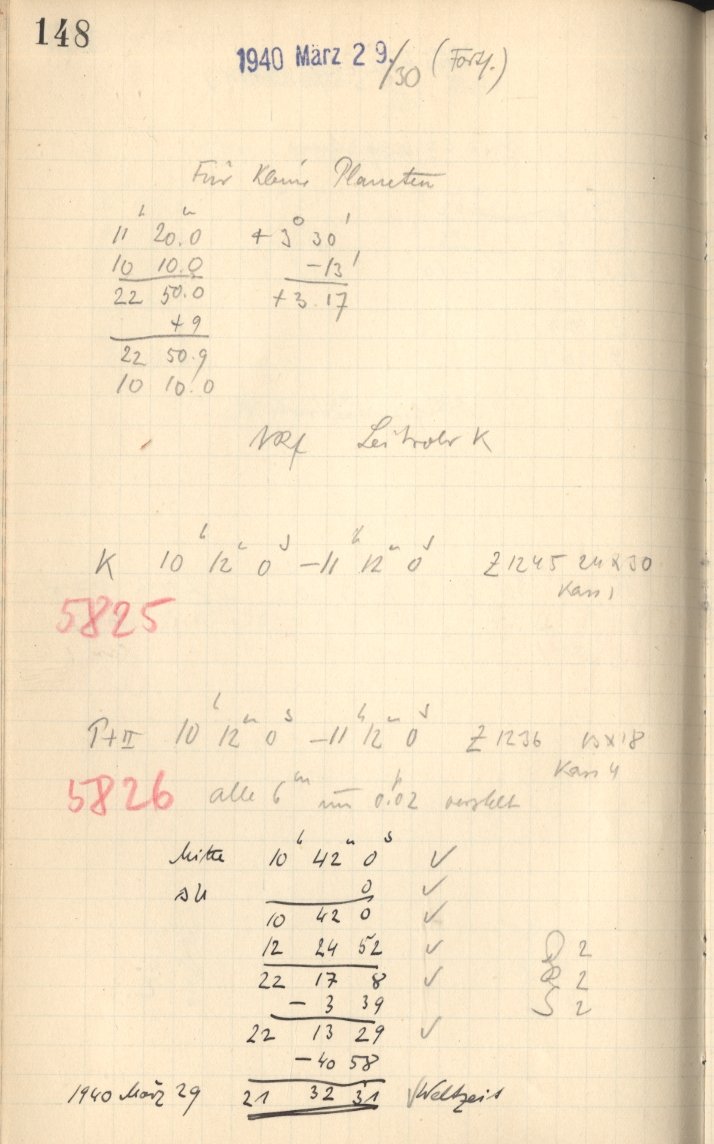 148
1940 März 29./30 (Forts.)
Für Kleine Planeten
11ʰ 20.0ᵐ +3° 30'
10 10.0 -13'
22 50.0 +3.17
+9
22 50.9
10 10.0
Leitrohr K
K 10ʰ 12ᵐ 0ˢ -11ʰ 12ᵐ 0ˢ Z1245 24x30
Kass 1
5825
T+II 10ʰ 12ᵐ 0ˢ -11ʰ 12ᵐ 0ˢ Z1236 13x18
Kass 4
5826 alle 6ᵐ um 0.02 verstellt
Mitte 10ʰ 42ᵐ 0ˢ ✓
ΔU 0 ✓
10 42 0 ✓
12 24 52 ✓
22 17 8 ✓ 2
- 3 39 2
22 13 29 ✓ S 2
-40 58
1940 März 29 21 32 31 ✓ Weltzeit